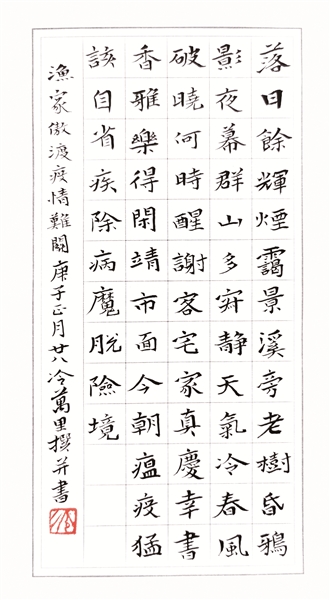 落日餘輝煙靄景溪旁老樹昏鴉
影夜幕群山多寂靜天氣冷春風
破曉何時醒謝客宅家真慶幸書
香雅樂得閑靖市面今朝瘟疫猛
該自省疾除病魔脫險境
漁家傲渡疫情難關庚子正月廿八冷萬里撰并書